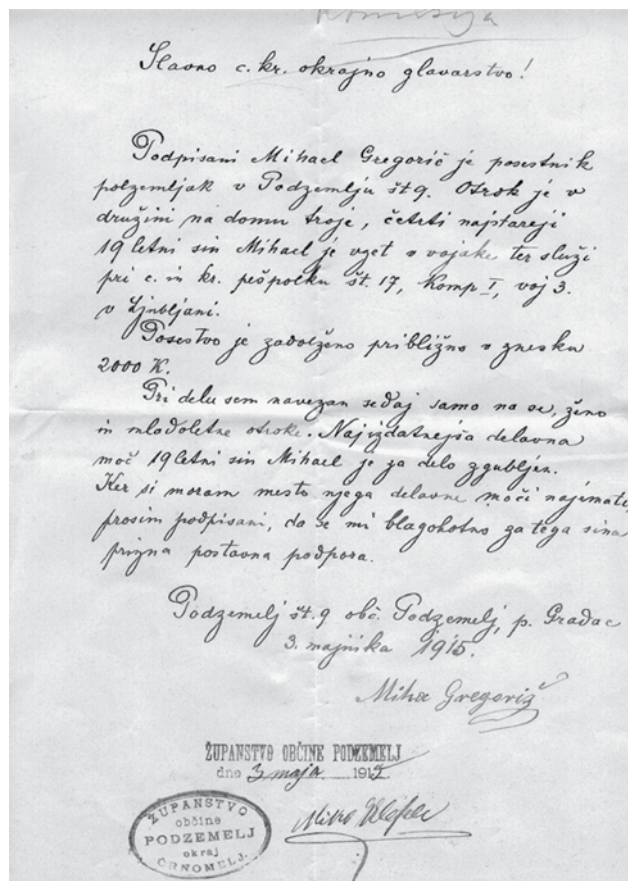 Komisija
Slavno c. kr. okrajno glavarstvo!
Podpisani Mihael Gregorič je posestnik
polzemljak v Podzemlju št 9. Otrok je v
družini na domu troje, četrti najstareji
19 letni sin Mihael je vzet v vojake ter služi
pri c. in kr. pešpolku št. 17, Komp I, voj 3.
v Ljubljani.
Posestvo je zadolženo približno v znesku
2000 K.
Pri delu sem navezan sedaj samo na se, ženo
in mladoletne otroke. Najizdatnejša delavna
moč 19 letni sin Mihael je za delo zgubljen.
Ker si moram mesto njega delavne moči najemati,
prosim podpisani, da se mi blagohotno za tega sina
prizna postavna podpora.
Podzemelj št. 9 obč. Podzemelj, p. Gradac
3. majnika 1915.
Miha Gregorič
ŽUPANSTVO OBČINE PODZEMELJ
dne 3 maja 1915.
ŽUPANSTVO
občine
PODZEMELJ
okraj
ČRNOMELJ.